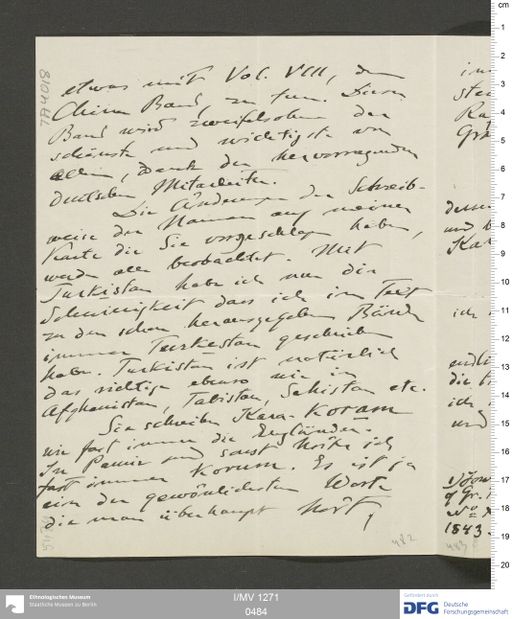 TA 4018
etwas mit Vol. VIII, dem
China Band, zu tun. Dieser
Band wird zweifelsohne der
schönste und wichtigste von
allen, Dank den hervorragenden
deutschen Mitarbeiter.
Die Änderungen der Schreib-
weise der Namen auf meiner
Karte die Sie vorgeschlagen haben,
werden alle beobachtet. Mit
Turkistan habe ich nun die
Schwierigkeit dass ich im Text
zu den schon herausgegeben Bände
immer Turkestan geschrieben
habe. Turkistan ist natürlich
das richtige ebenso wie in
Afghanistan, Tabistan, Sehistan etc.
Sie schreiben Kara-Koram
wie fast immer die Engländer.
In Pamir und sonst hörte ich
fast immer Korum. Es ist ja
ein der gewöhnlichsten Worte
die man überhaupt hört,
482
483
1883.
cm
1
2
3
4
5
6
7
8
9
10
11
12
13
14
15
16
17
18
19
20
Ethnologisches Museum
Staatliche Museen zu Berlin
I/MV 1271
0484
Gefördert durch
DFG Deutsche
Forschungsgemeinschaft